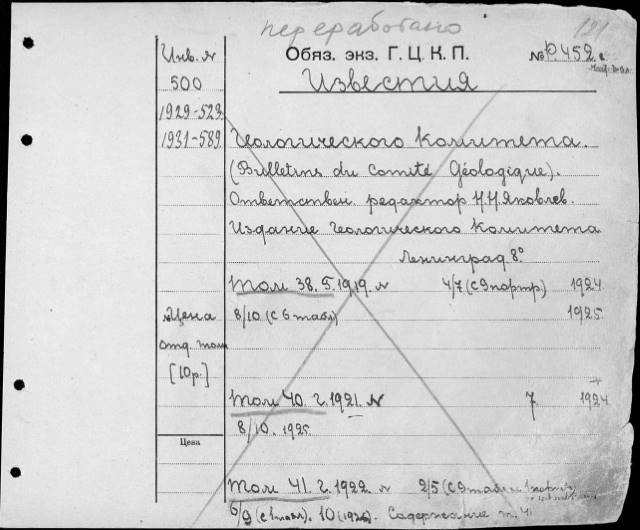 переработано
121
Инв. №
Обяз. экз. Г. Ц. К. П.
№ P.452
500
Известия
1929-523
1931-589
Геологического Комитета.
(Bulletins du Comité Géologique).
Ответствен. редактор Н.Н.Яковлев.
Издание Геологического Комитета
Ленинград 8º
Том 38. г. 1919. № 4/7 (с 9 портр.) 1924
Цена
8/10 (с 6 табл) 1925
отд. тома
[10р.]
Том 40. г. 1921. № 7 1924
8/10. 1925
Цена
Том 41. г. 1922. № 2/5 (с 9 табл и 1 портр)
6/9 (с 1 табл). 10 (1926). Содержание т. 41